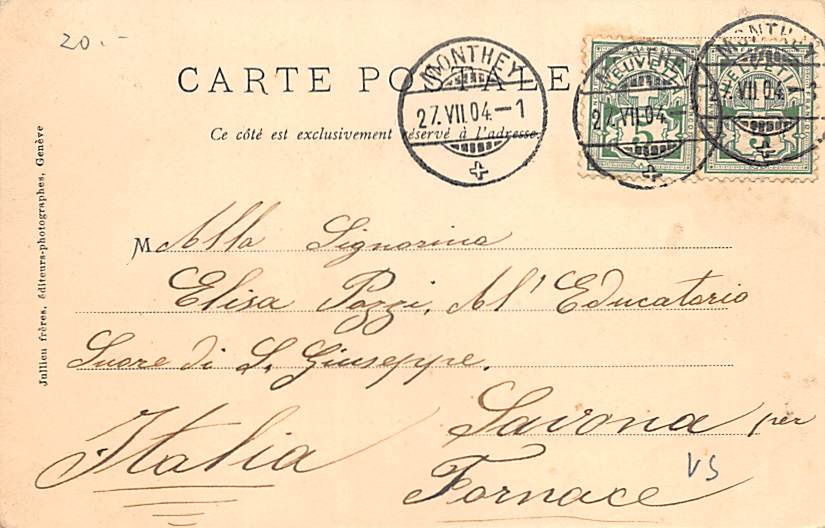 20.-
CARTE POSTALE
Ce côté est exclusivement réservé à l'adresse.
MONTHEY
27.VII.04-1
MONTHEY
27.VII.04
MONTHEY
27.VII.04-3
HELVETIA
5
HELVETIA
5
M Alla Signorina
Elisa Pozzi, All' Educatorio
Suore di S. Giuseppe.
Savona per
Italia
Fornace
VS
Jullien frères, éditeurs-photographes, Genève